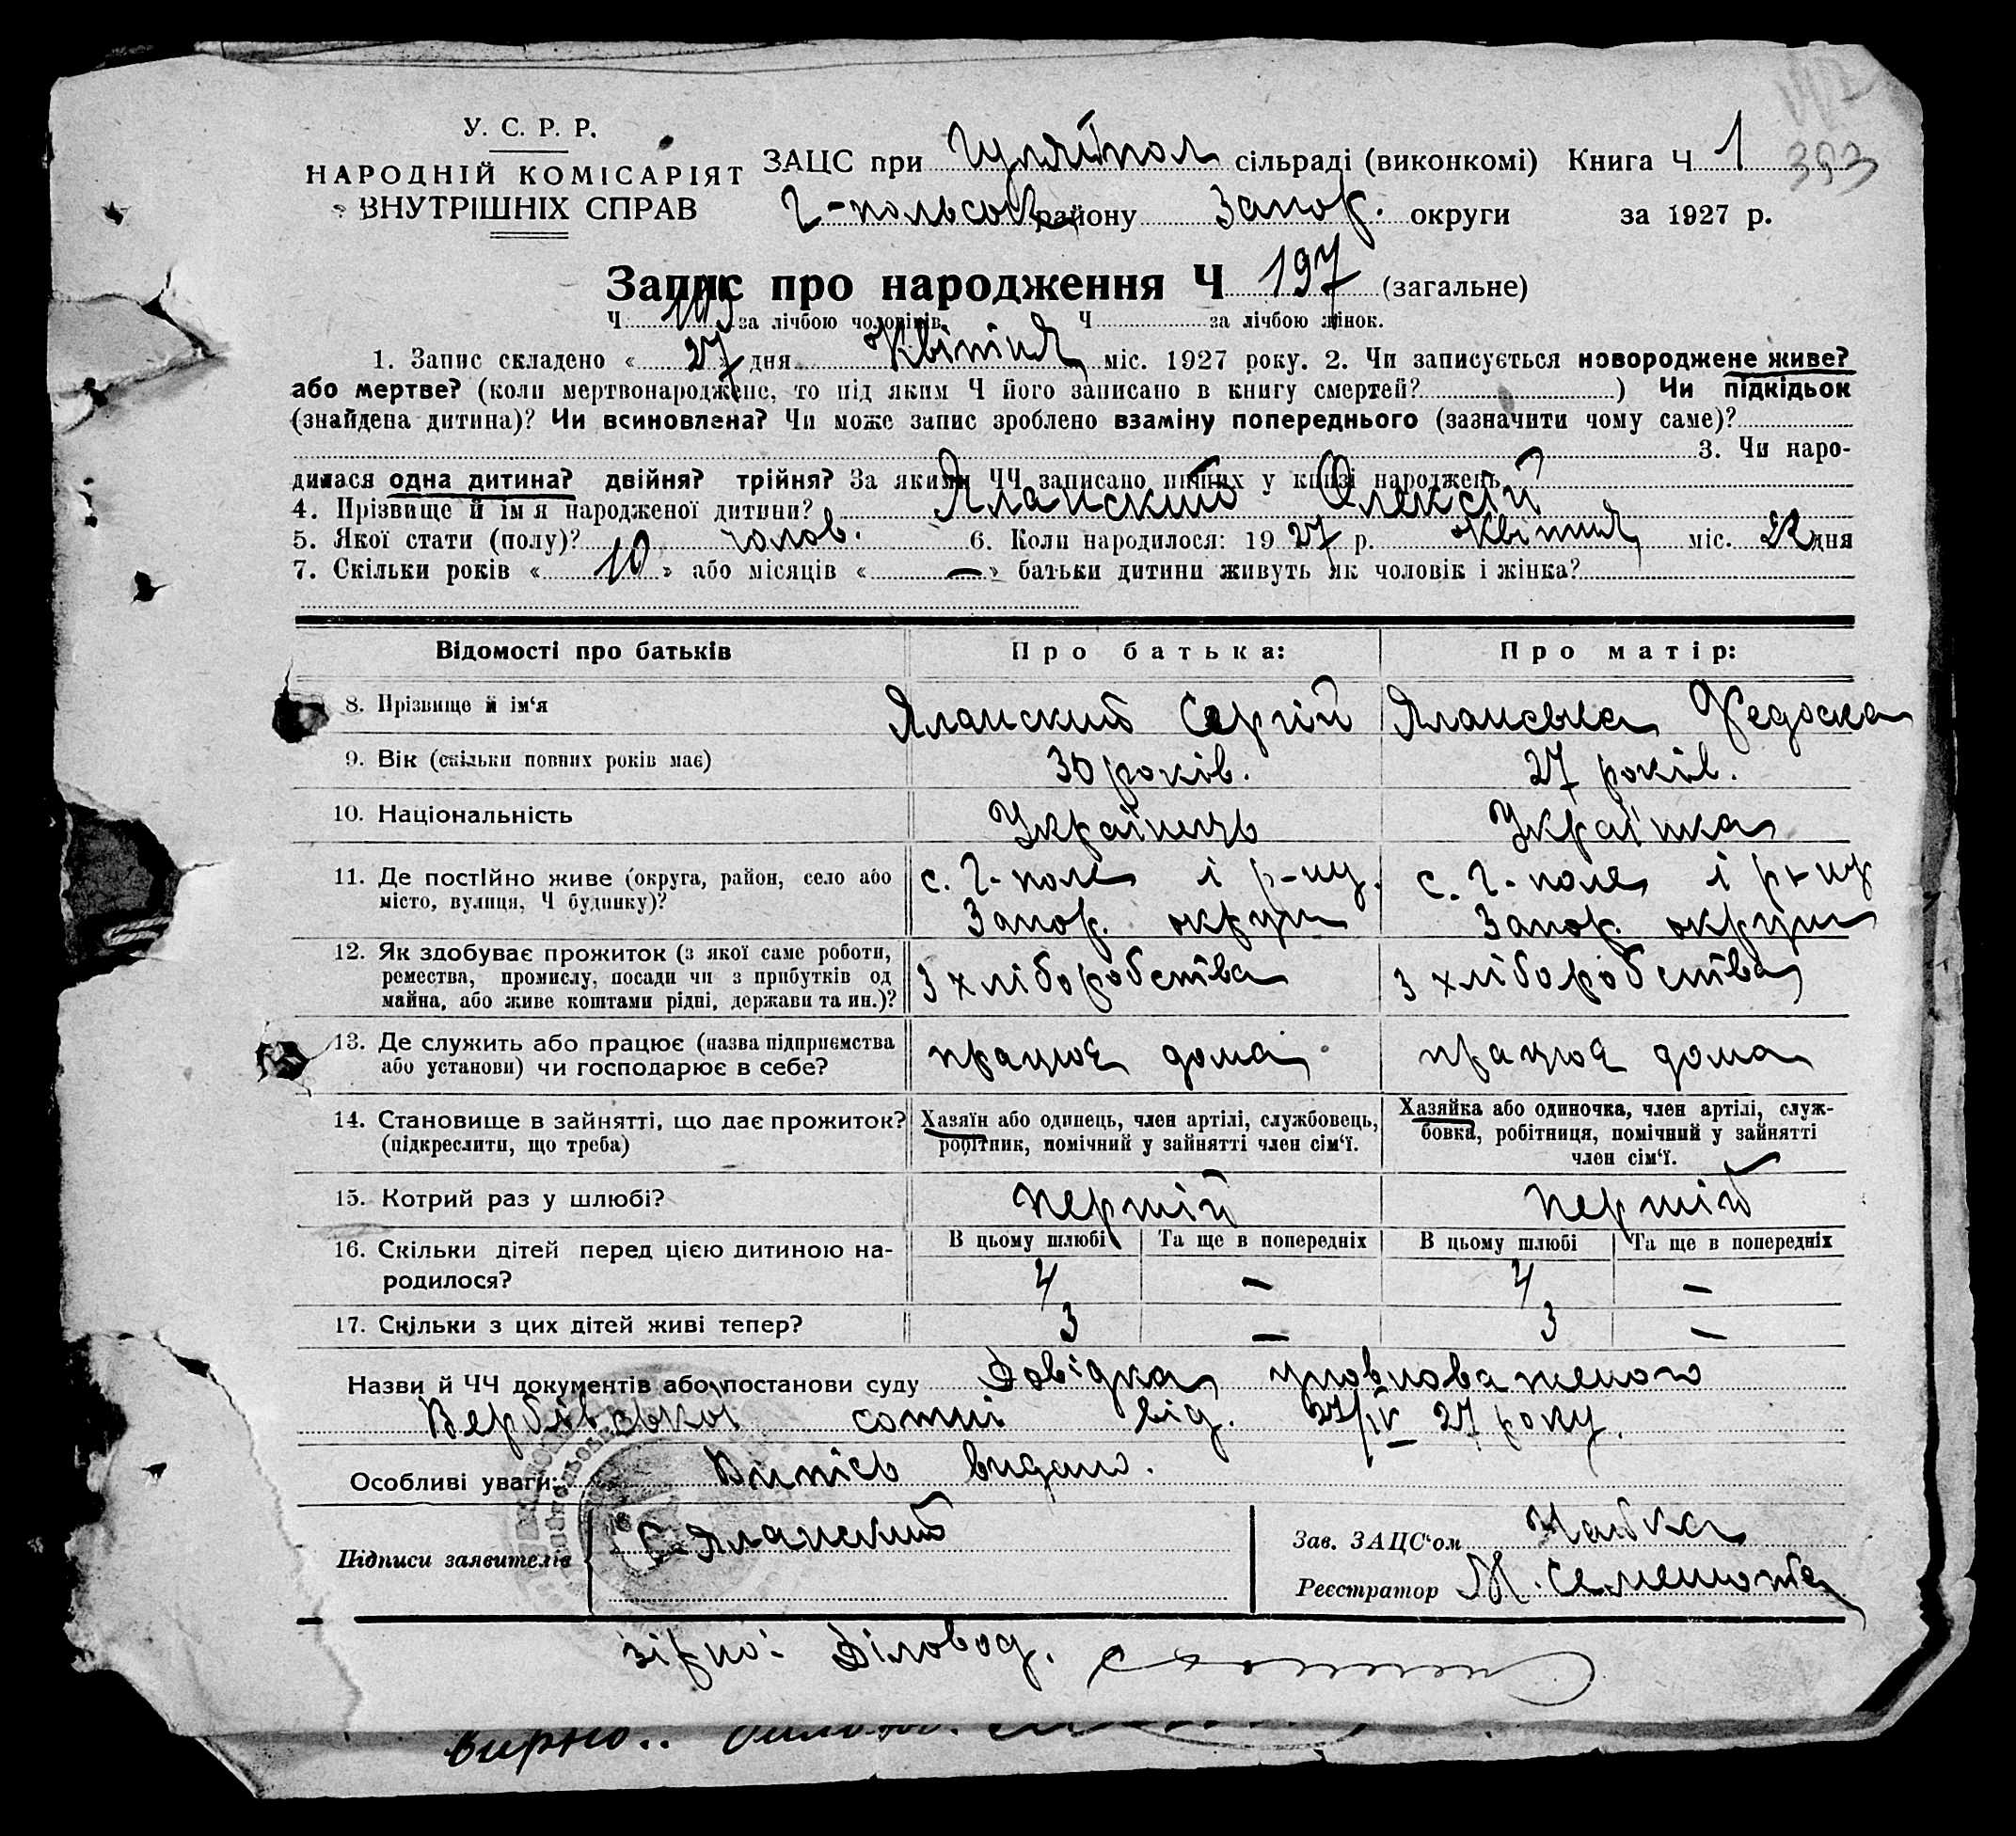 У. С. Р. Р.
НАРОДНІЙ КОМІСАРІЯТ
ВНУТРІШНІХ СПРАВ
ЗАЦС при Гуляйпол сільраді (виконкомі) Книга Ч 1
393
Г-польськ району Запор. округи за 1927 р.
Запис про народження Ч 197 (загальне)
Ч 103 за лічбою чоловіків Ч за лічбою жінок.
1. Запис складено « 27 » дня Квітня міс. 1927 року. 2. Чи записується новороджене живе?
або мертве? (коли мертвонароджене, то під яким Ч його записано в книгу смертей? ) Чи підкідьок
(знайдена дитина)? Чи всиновлена? Чи може запис зроблено взаміну попереднього (зазначити чому саме)?
3. Чи наро-
дилася одна дитина? двійня? трійня? За якими ЧЧ записано инших у книзі народжень
4. Прізвище й ім'я народженої дитини? Яланский Олексій
5. Якої стати (полу)? чолов. 6. Коли народилося: 19 27 р. Квітня міс. 22 дня
7. Скільки років « 10 » або місяців « — » батьки дитини живуть як чоловік і жінка?
Відомості про батьків Про батька: Про матір:
8. Прізвище й ім'я Яланский Сергій Яланська Федоска
9. Вік (скільки повних років має) 30 років. 27 років.
10. Національність Українець Українка
11. Де постійно живе (округа, район, село або с. Г-поле і р-ну. с. Г-поле і р-ну
місто, вулиця, Ч будинку)? Запор. округи Запор. округи
12. Як здобуває прожиток (з якої саме роботи,
ремества, промислу, посади чи з прибутків од з хліборобства з хліборобства
майна, або живе коштами рідні, держави та ин.)?
13. Де служить або працює (назва підприємства працює дома працює дома
або установи) чи господарює в себе?
14. Становище в зайнятті, що дає прожиток? Хазяїн або одинець, член артілі, службовець, Хазяйка або одиночка, член артілі, служ-
(підкреслити, що треба) робітник, помічний у зайнятті член сім'ї. бовка, робітниця, помічний у зайнятті
член сім'ї.
15. Котрий раз у шлюбі? перший перший
16. Скільки дітей перед цією дитиною на- В цьому шлюбі Та ще в попередніх В цьому шлюбі Та ще в попередніх
родилося? 4 — 4 —
17. Скільки з цих дітей живі тепер? 3 — 3 —
Назви й ЧЧ документів або постанови суду Довідка уповноваженого
Вербівської сотні від. 27/IV 27 року.
Особливі уваги: Випісь видано.
Підписи заявителів С. Яланский
Зав. ЗАЦС'ом
Реєстратор М.
зірно: Діловод.
вирно..